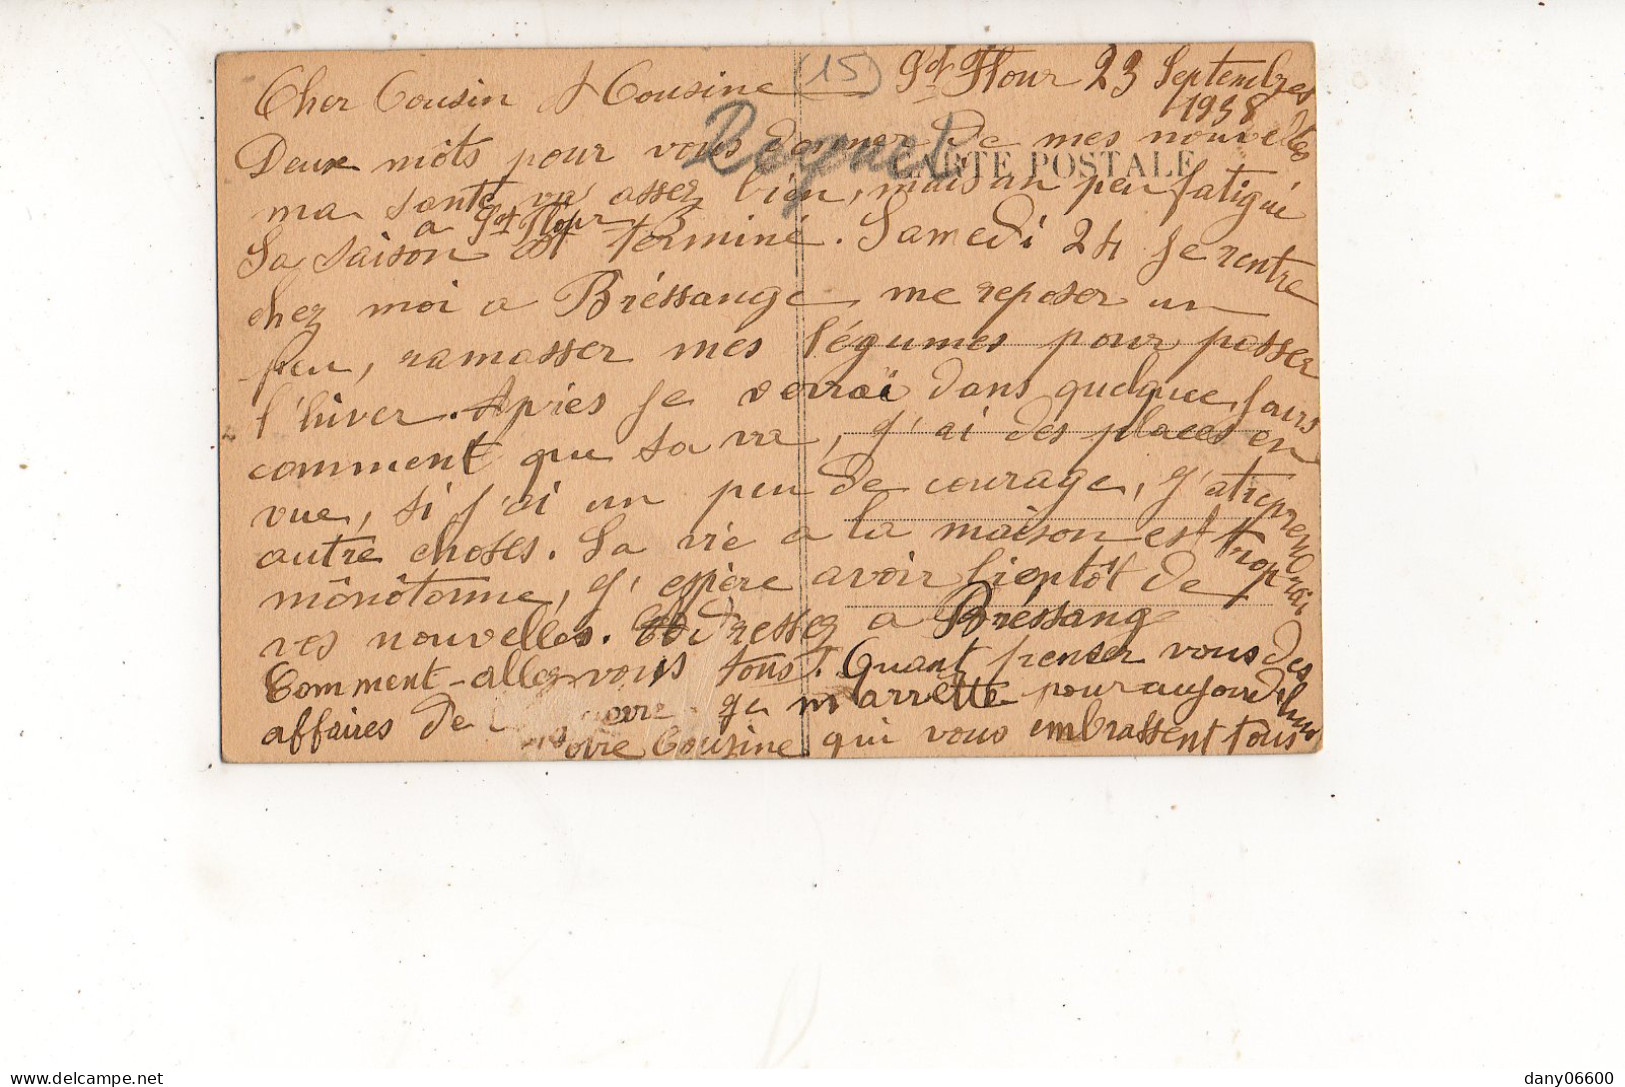 (15)
St Flour 23 Septembres
1938
Cher Cousin & Cousine
CARTE POSTALE
Deux môts pour vous donner de mes nouvelles
ma santé va assez bien, mais un peu fatigué
La saison a St Flour est terminé. Samedi 24 je rentre
chez moi a Bréssange me reposer un
peu, ramasser mes légumes pour passer
l'hiver. Après je verrai dans quelque jours
comment que sa va, j'ai des places en
vue, si j'ai un peu de courage, j'atreprendrai
autre choses. La vie a la maison est trop
mônôtonne, j'espère avoir bientôt de
vos nouvelles. Adressez a Bréssange
Comment-allez vous tous. Quant penser vous des
affaires de ça m'arrette pour aujourd'hui
Votre Cousine qui vous embrassent tous
delcampe.net
dany06600